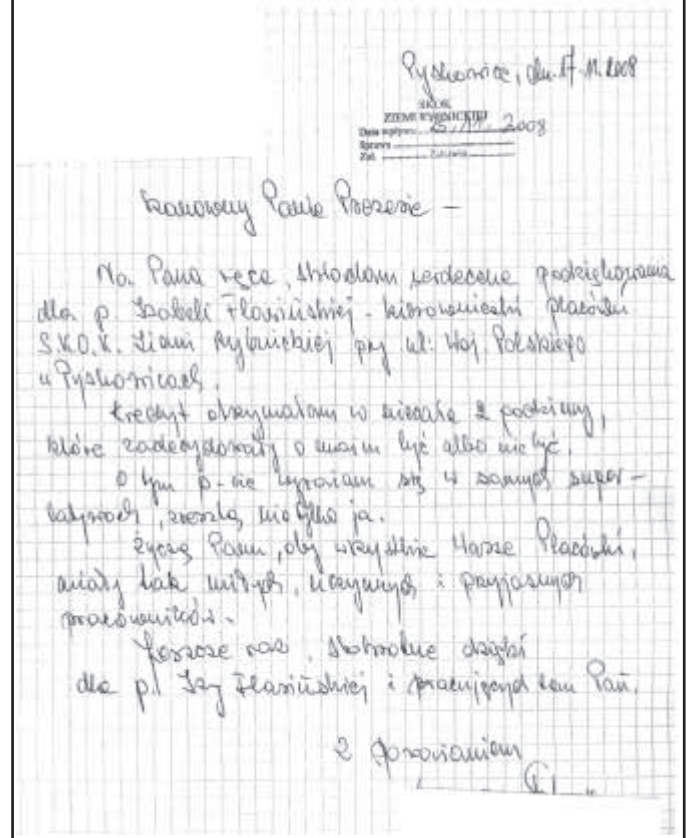 Pyskowice, dn. 17.11.2008
SKOK
ZIEMI RYBNICKIEJ
Data wpływu 25.11.2008
Sprawa
Zał.
Szanowny Panie Prezesie –
Na Pana ręce, składam serdeczne podziękowania
dla p. Izabeli Flasińskiej - kierowniczki placówki
S.K.O.K. Ziemi Rybnickiej przy ul: Woj. Polskiego
w Pyskowicach.
Kredyt otrzymałam w niecałe 2 godziny,
które zadecydowały o moim być albo nie być.
O tym p-cie wyrażam się w samych super-
latywach, zresztą nie tylko ja.
Życzę Panu, aby wszystkie Wasze Placówki,
miały tak miłych, uczynnych i przyjaznych
pracowników.
Jeszcze raz, stokrotne dzięki
dla p. Izy Flasińskiej i pracujących tam Pań.
Z poważaniem